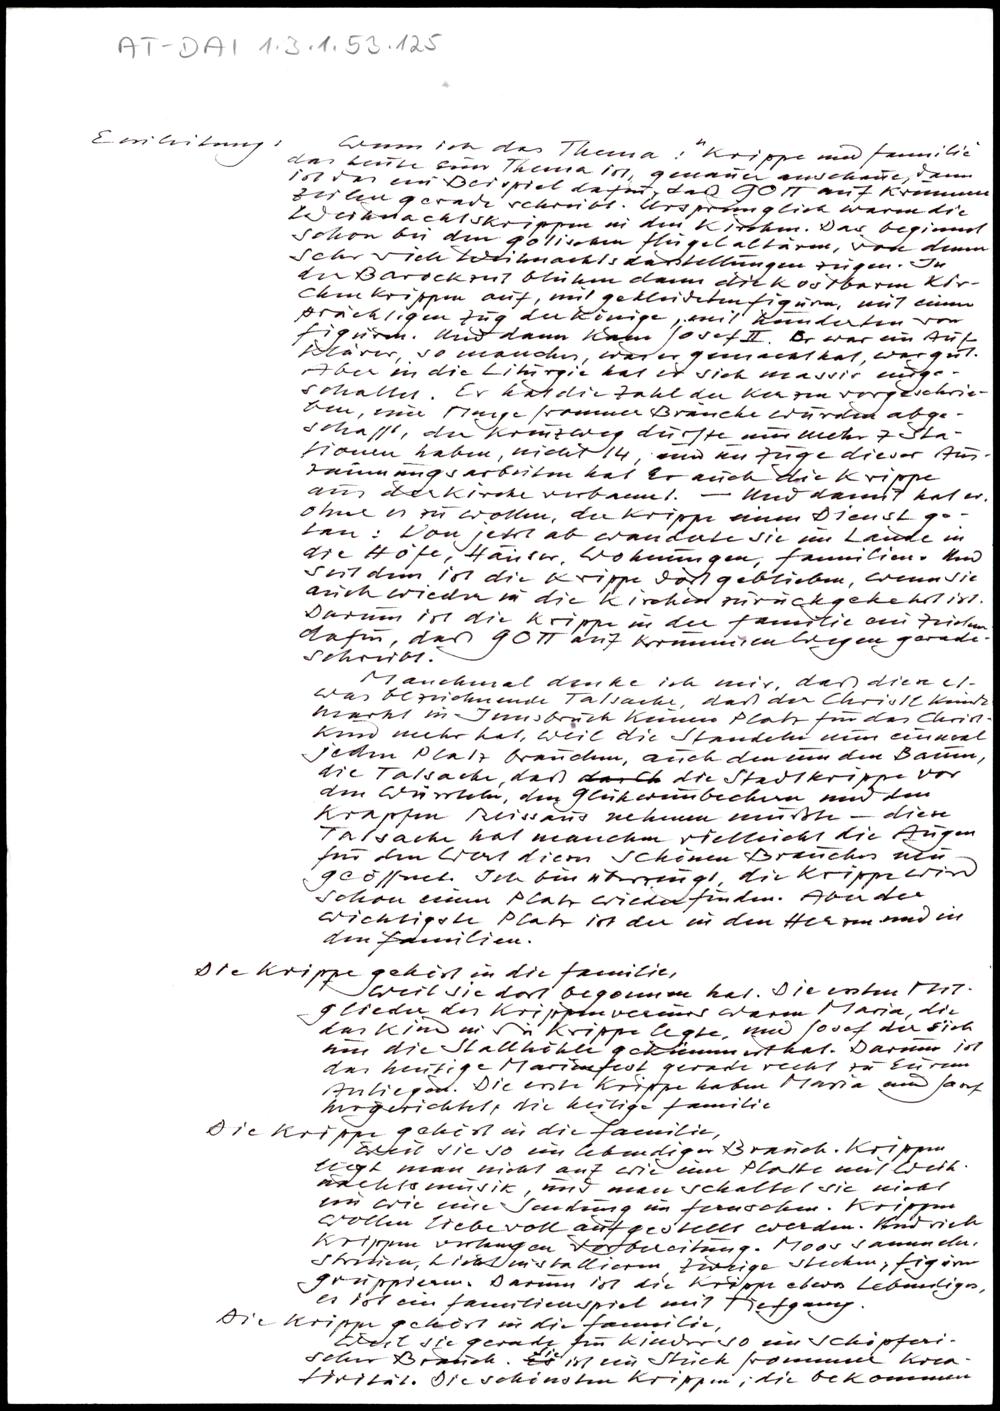 AT-DAI 1.3.1.53.125
Einleitung: Wenn ich das Thema: "Krippe und Familie
das heute euer Thema ist, genauer anschaue, dann
ist das ein Beispiel dafür, daß GOTT auf krummen
Zeilen gerade schreibt. Ursprünglich waren die
Weihnachtskrippen in den Kirchen. Das beginnt
schon bei den gotischen Flügelaltären, von denen
sehr viele Weihnachtsdarstellungen zeigen. In
der Barockzeit blühen dann die kostbaren Kir-
chenkrippen auf, mit gekleideten Figuren, mit einem
prächtigen Zug der Könige, mit hunderten von
Figuren. Und dann kam Josef II. Er war ein Auf-
klärer, so manches, was er gemacht hat, war gut.
Aber in die Liturgie hat er sich massiv einge-
schaltet. Er hat die Zahl der Kerzen vorgeschrie-
ben, eine Menge frommer Bräuche wurden abge-
schafft, der Kreuzweg durfte nur mehr 7 Sta-
tionen haben, nicht 14, und im Zuge dieser Aus-
räumungsarbeiten hat Er auch die Krippe
aus der Kirche verbannt. — Und damit hat er,
ohne es zu wollen, der Krippe einen Dienst ge-
tan: Von jetzt ab wanderte sie im Lande in
die Höfe, Häuser, Wohnungen, Familien. Und
seitdem ist die Krippe dort geblieben, wenn sie
auch wieder in die Kirchen zurückgekehrt ist.
Darum ist die Krippe in der Familie ein Zeichen
dafür, daß GOTT auf krummen Wegen gerade
schreibt.
Manchmal denke ich mir, daß diese et-
was bezeichnende Tatsache, daß der Christkindl
markt in Innsbruck keinen Platz für das Christ-
kind mehr hat, weil die Standeln nun einmal
jeden Platz brauchen, auch den um den Baum,
die Tatsache, daß die Stadtkrippe vor
den Würsteln, den Glühweinbechern und den
Krapfen Reissaus nehmen mußte — diese
Tatsache hat manchem vielleicht die Augen
für den Wert dieses schönen Brauches neu
geöffnet. Ich bin überzeugt, die Krippe wird
schon einen Platz wieder finden. Aber der
wichtigste Platz ist der in den Herzen und in
den Familien.
Die Krippe gehört in die Familie,
weil sie dort begonnen hat. Die ersten Mit-
glieder des Krippenvereins waren Maria, die
das Kind in die Krippe legte, und Josef der sich
um die Stallhöhle gekümmert hat. Darum ist
das heutige Marienfest gerade recht zu Eurem
Anliegen. Die erste Krippe haben Maria und Josef
hergerichtet, die heilige Familie
Die Krippe gehört in die Familie,
weil sie so ein lebendiger Brauch. Krippen
legt man nicht auf wie eine Platte mit Weih-
nachtsmusik, und man schaltet sie nicht
ein wie eine Sendung im Fernsehen. Krippen
wollen liebevoll aufgestellt werden. Und viele
Krippen verlangen Vorbereitung. Moos sammeln,
streuen, Licht installieren, Zweige stecken, Figuren
gruppieren. Darum ist die Krippe etwas Lebendiges,
es ist ein Familienspiel mit Tiefgang.
Die Krippe gehört in die Familie,
weil sie gerade für Kinder so ein schöpferi-
scher Brauch. Sie ist ein Stück frommer Krea-
tivität. Die schönsten Krippen, die bekommen